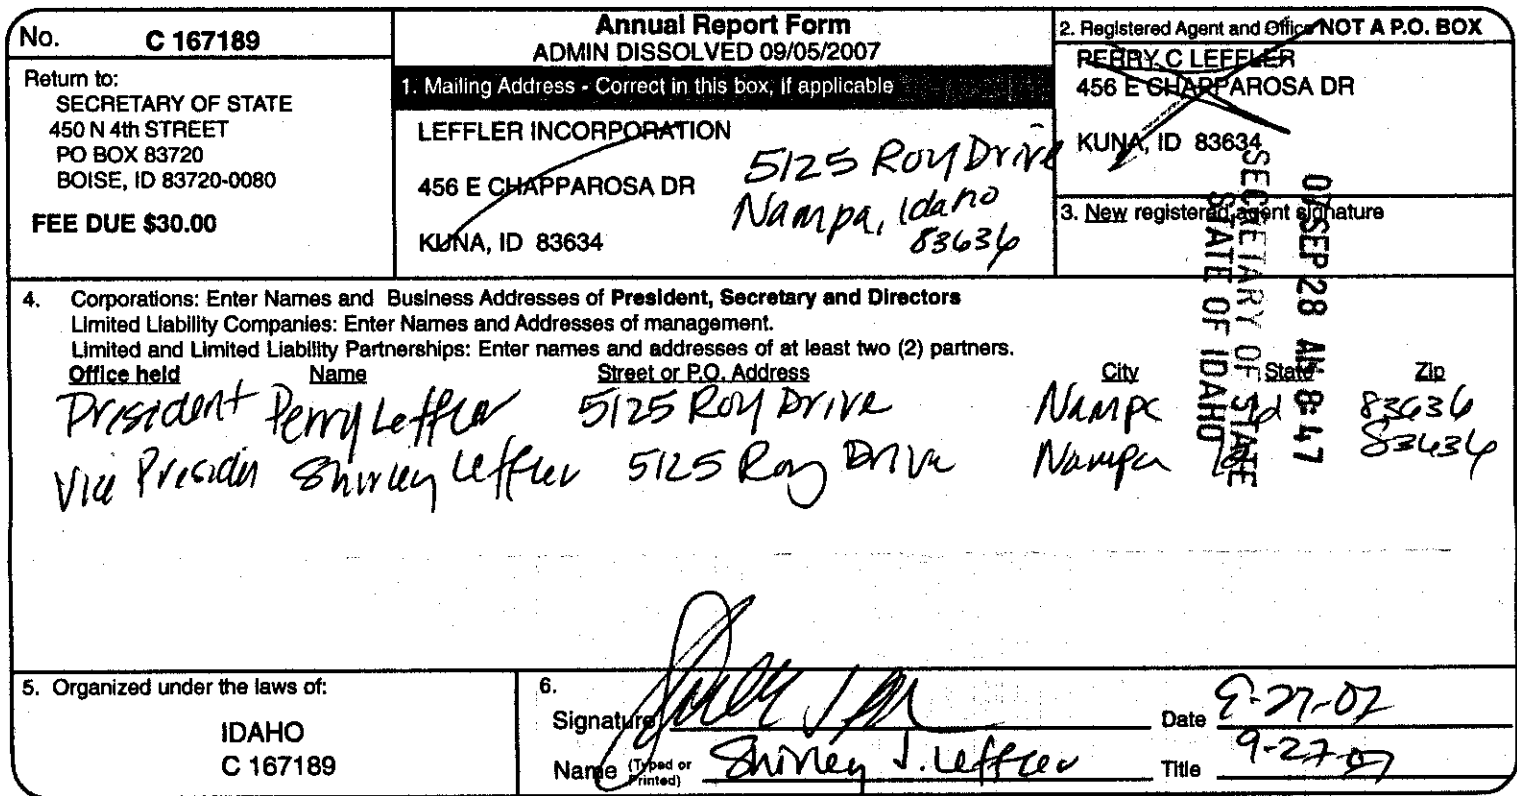 No. C 167189
Return to:
SECRETARY OF STATE
450 N 4th STREET
PO BOX 83720
BOISE, ID 83720-0080
FEE DUE $30.00
Annual Report Form
ADMIN DISSOLVED 09/05/2007
1. Mailing Address - Correct in this box, if applicable
LEFFLER INCORPORATION
456 E CHAPPAROSA DR
KUNA, ID 83634
5125 Roy Drive
Nampa, Idaho
83636
2. Registered Agent and Office NOT A P.O. BOX
PERRY C LEFFLER
456 E CHAPPAROSA DR
KUNA, ID 83634
3. New registered agent signature
07 SEP 28 AM 8:47
SECRETARY OF STATE
STATE OF IDAHO
4. Corporations: Enter Names and Business Addresses of President, Secretary and Directors
Limited Liability Companies: Enter Names and Addresses of management.
Limited and Limited Liability Partnerships: Enter names and addresses of at least two (2) partners.
Office held Name Street or P.O. Address City State Zip
President Perry Leffler 5125 Roy Drive Nampa Id 83636
Vice President Shirley Leffler 5125 Roy Drive Nampa Id 83636
5. Organized under the laws of:
IDAHO
C 167189
6.
Signature Date 9-27-07
Name (Typed or Printed) Shirley J. Leffler Title 9-27-07